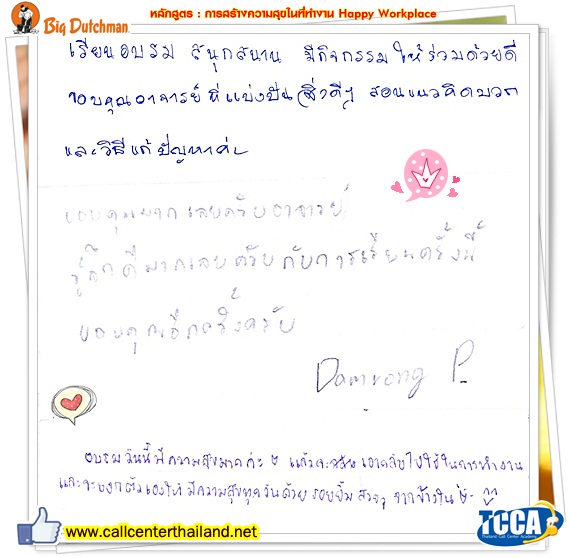 หลักสูตร : การสร้างความสุขในที่ทำงาน Happy Workplace
Big Dutchman
เรียนอบรม สนุกสนาน มีกิจกรรมให้ร่วมด้วยดี
ขอบคุณอาจารย์ที่แบ่งปันสิ่งดีๆ สอนแนวคิดบวก
และวิธีแก้ปัญหาค่ะ
ขอบคุณมากเลยครับอาจารย์
รู้สึกดีมากเลยครับกับการเรียนครั้งนี้
ขอบคุณอีกครั้งครับ
Damrong P.
อบรมวันนี้มีความสุขมากค่ะ แล้วจะ เอากลับไปใช้ในการทำงาน
และจะบอกตัวเองให้มีความสุขทุกวันด้วยรอยยิ้ม จากข้างใน
www.callcenterthailand.net
TCCA
Thailand Call Center Academy